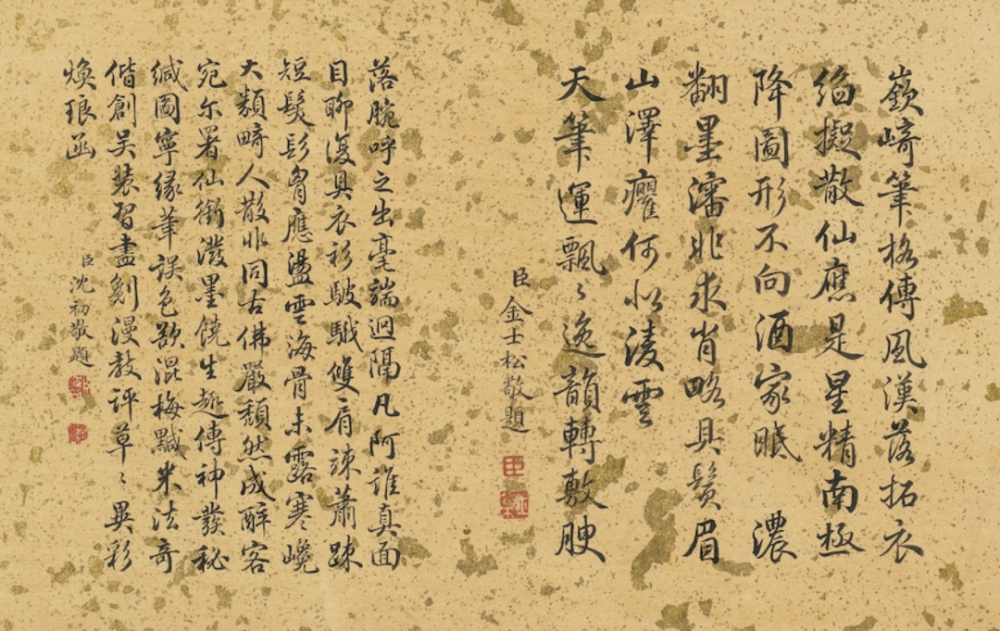 嶔崎筆格傳風漢落拓衣
縚擬散仙應是星精南極
降圖形不向酒家眠 濃
翻墨瀋非求肖略具鬚眉
山澤癯何似淩雲
天筆運飄〻逸韻轉敷腴
臣金士松敬題
落腕呼之出毫端迥隔凡阿誰真面
目聊復具衣衫駊騀雙肩竦蕭疎
短髮髟胷應盪雲海骨未露寒巉
大類畸人散非同古佛嚴頹然成醉客
宛尔署仙銜潑墨饒生趣傳神發秘
緘圖寧緣筆誤色欲混梅黬米法奇
偕創吴裝習盡劖漫教評草〻異彩
煥琅函
臣沈初敬題